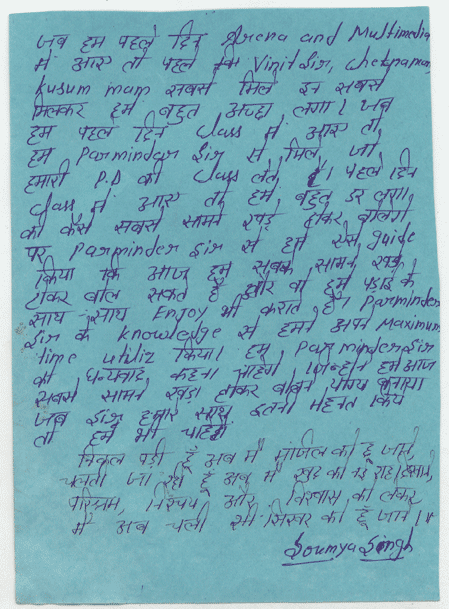 जब हम पहले दिन Arena and Multimedia
में आए तो पहले हम Vinit Sir, chetna mam,
kusum mam सबसे मिले इन सबसे
मिलकर हमें बहुत अच्छा लगा। जब
हम पहले दिन class में आए तो
हम Parminder Sir से मिले, जो
हमारी P.D की class लेते हैं। पहले दिन
class में आए तो हमें बहुत डर लगा
की कैसे सबके सामने खड़े होकर बोलेंगे
पर Parminder Sir से हमें ऐसे guide
किया कि आज हम सबके सामने खड़े
होकर बोल सकते हैं और वो हमें पढ़ाई के
साथ-साथ Enjoy भी कराते हैं। Parminder
Sir के knowledge से हमने अपने Maximum
time utiliz किया। हम Parminder Sir
को धन्यवाद कहना चाहेंगे जिन्होंने हमें आज
सबके सामने खड़ा होकर बोलने योग्य बनाया
जब Sir हमारे साथ इतनी मेहनत किये
तो हमें भी चाहिए
निकल पड़ी हूँ अब मैं मंजिल को हूँ जाने,
चलती जा रही हूँ अब मैं खुद की नई राह
परिश्रम, निश्चय और विश्वास को लेकर
मैं अब चली शिखर को हूँ जाने।।
Soumya Singh